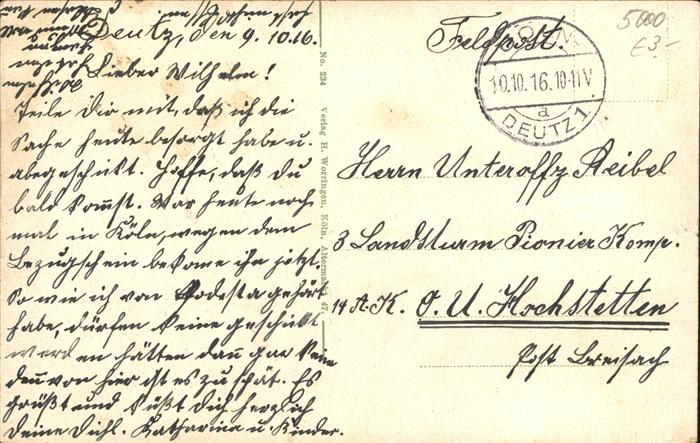 Deutz, den 9.10.16.
Lieber Wilhelm!
Teile dir mit, daß ich die
Sache heute besorgt habe u.
abgeschickt. Hoffe, daß Du
bald kommst. War heute noch
mal in Köln, wegen dem
Bezugschein bekome ihn jetzt.
So wie ich von gehört
habe, dürfen keine geschickt
werden hätten dann gar keine
denn von hier ist es zu spät. Es
grüßt und küßt Dich herzlich
Deine Dichl. Katharina u. Kinder.
No. 234 Verlag H. Worringen, Köln, Altermarkt 47.
Feldpost.
10.10.16.10-11V
a
DEUTZ 1
5000
£3-
Herrn Unteroffz Reibel
3 Landsturm Pionier Komp.
14 A.K. O.U. Hochstetten
Post Breisach